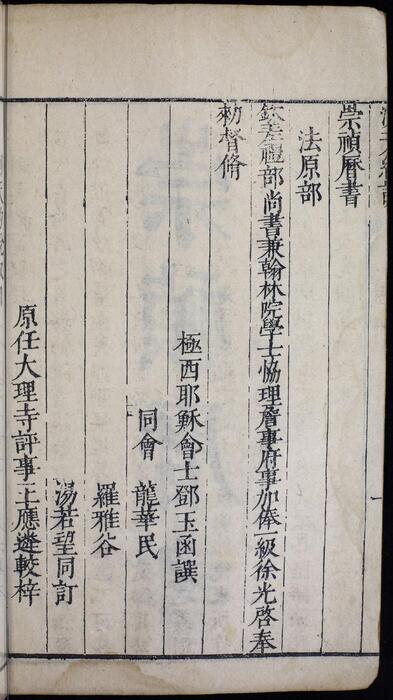 崇禎曆書
法原部
欽差禮部尚書兼翰林院學士恊理詹事府事加俸一級徐光啓奉
勑督脩
極西耶穌會士鄧玉函譔
同會龍華民
羅雅谷
湯若望同訂
原任大理寺評事王應遴較梓